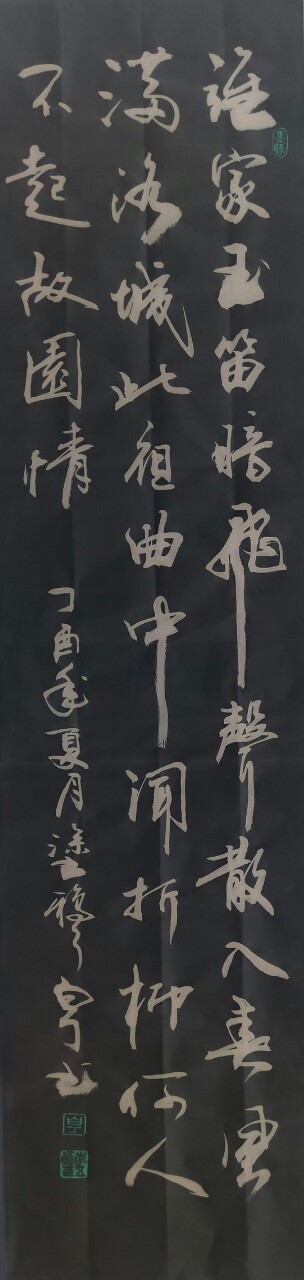 誰家玉笛暗飛聲散入春風
滿洛城此祖曲中闻折柳何人
不起故園情
丁酉年夏月塗鴉